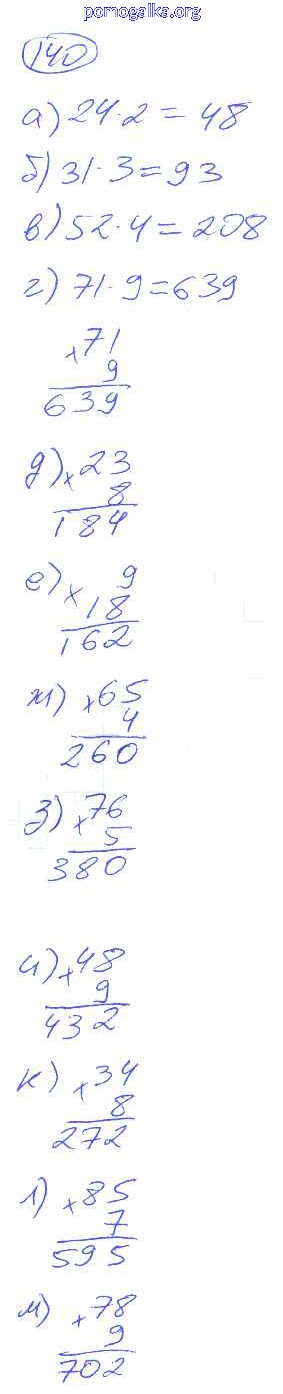 pomogalka.org
140
а) 24·2=48
б) 31·3=93
в) 52·4=208
г) 71·9=639
×71
9
639
д) ×23
8
184
е) × 9
18
162
ж) ×65
4
260
з) ×76
5
380
и) ×48
9
432
к) ×34
8
272
л) ×85
7
595
м) ×78
9
702